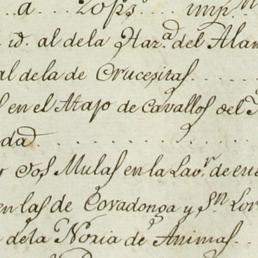 a .. 20 p.s .. imp.
id. al de la Haz.a del Alam
al de la de Crucesitas ....
en el Atajo de Cavallos del
dad ....
Dos Mulas en la Lao.r de
en las de Covadonga y S.n Lor
de la Noria de Animas ..